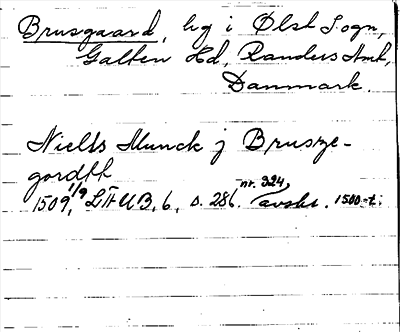 Brusgaard, hg i Ølst Sogn,
Galten Hd, Randers Amt,
Danmark.
Nielss Munck j Brusze-
gordth
1509, 1/9 LÆUB, 6, s. 286. nr. 324, avskr. 1500-t.